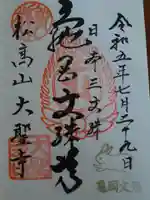 令和五年七月二十九日
日本三文殊
亀岡文殊尊
松高山大聖寺
亀岡文殊